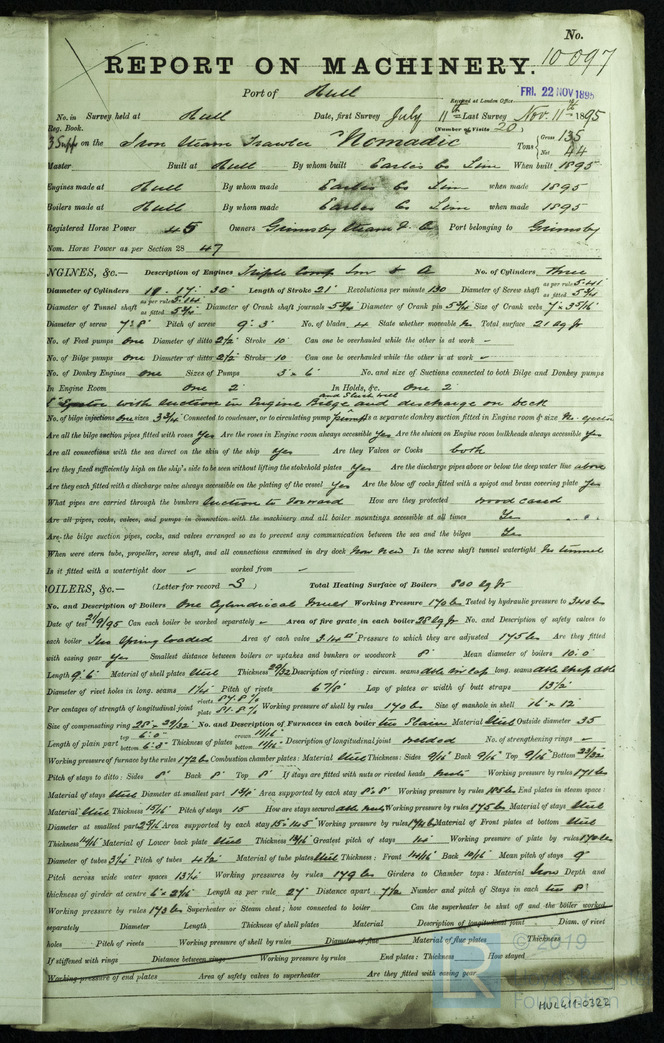 No.
REPORT ON MACHINERY. 10097
Port of Hull
FRI. 22 NOV 1895
Received at London Office
No. in Survey held at Hull Date, first Survey July 11th Last Survey Nov. 11th 1895
Reg. Book. (Number of Visits 20)
on the Iron Steam Trawler "Nomadic" Tons Gross 135 Net 44
Master Built at Hull By whom built Earle's Co Lim When built 1895
Engines made at Hull By whom made Earle's Co Lim when made 1895
Boilers made at Hull By whom made Earle's Co Lim when made 1895
Registered Horse Power 45 Owners Grimsby Steam Port belonging to Grimsby
Nom. Horse Power as per Section 28 47
NGINES, &c.— Description of Engines Triple Comp No. of Cylinders Three
Diameter of Cylinders 17 30 Length of Stroke 21" Revolutions per minute 130 Diameter of Screw shaft as per rule 5.41 as fitted
Diameter of Tunnel shaft as per rule 5.14 as fitted Diameter of Crank shaft journals Diameter of Crank pin Size of Crank webs
Diameter of screw 7'8" Pitch of screw 9'3" No. of blades 4 State whether moveable no Total surface 21 sq ft
No. of Feed pumps one Diameter of ditto 2½" Stroke 10" Can one be overhauled while the other is at work –
No. of Bilge pumps one Diameter of ditto 2½" Stroke 10" Can one be overhauled while the other is at work –
No. of Donkey Engines one Sizes of Pumps 3" x 6" No. and size of Suctions connected to both Bilge and Donkey pumps
In Engine Room One 2" In Holds, &c. One 2"
and Slush well
Ejector with suction in Engine Bilge and discharge on Deck
No. of bilge injections one sizes 3¾" Connected to condenser, or to circulating pump pump Is a separate donkey suction fitted in Engine room & size No. ejector
Are all the bilge suction pipes fitted with roses Yes Are the roses in Engine room always accessible Yes Are the sluices on Engine room bulkheads always accessible Yes
Are all connections with the sea direct on the skin of the ship Yes Are they Valves or Cocks both
Are they fixed sufficiently high on the ship's side to be seen without lifting the stokehold plates Yes Are the discharge pipes above or below the deep water line above
Are they each fitted with a discharge valve always accessible on the plating of the vessel Yes Are the blow off cocks fitted with a spigot and brass covering plate Yes
What pipes are carried through the bunkers Suction to Forward How are they protected wood cased
Are all pipes, cocks, valves, and pumps in connection with the machinery and all boiler mountings accessible at all times Yes
Are the bilge suction pipes, cocks, and valves arranged so as to prevent any communication between the sea and the bilges Yes
When were stern tube, propeller, screw shaft, and all connections examined in dry dock Now New Is the screw shaft tunnel watertight No tunnel
Is it fitted with a watertight door – worked from –
BOILERS, &c.— (Letter for record S) Total Heating Surface of Boilers 800 sq ft
No. and Description of Boilers One Cylindrical Working Pressure 170 lbs Tested by hydraulic pressure to 340 lbs
Date of test 21/9/95 Can each boiler be worked separately – Area of fire grate in each boiler 28 sq ft No. and Description of safety valves to
each boiler Two Spring loaded Area of each valve 3.14 Pressure to which they are adjusted 175 lbs Are they fitted
with easing gear yes Smallest distance between boilers or uptakes and bunkers or woodwork 8" Mean diameter of boilers 10'.0"
Length 9'.6" Material of shell plates Steel Thickness 29/32 Description of riveting: circum. seams dble riv lap long. seams
Diameter of rivet holes in long. seams Pitch of rivets Lap of plates or width of butt straps 13½"
Per centages of strength of longitudinal joint rivets 87.8% plate 81.8% Working pressure of shell by rules 170 lbs Size of manhole in shell 16" x 12"
Size of compensating ring 28" x 29/32" No. and Description of Furnaces in each boiler two Plain Material Steel Outside diameter 35
Length of plain part top 6'.0" bottom Thickness of plates crown 11/16" bottom 11/16" Description of longitudinal joint welded No. of strengthening rings –
Working pressure of furnace by the rules 172 lbs Combustion chamber plates: Material Steel Thickness: Sides 9/16" Back 9/16" Top 9/16" Bottom 23/32"
Pitch of stays to ditto: Sides 8" Back 8" Top 8" If stays are fitted with nuts or riveted heads Nuts Working pressure by rules 171 lbs
Material of stays Steel Diameter at smallest part Area supported by each stay 8" x 8" Working pressure by rules 185 lbs End plates in steam space:
Material Steel Thickness 15/16" Pitch of stays 15 How are stays secured dble Nuts Working pressure by rules 175 lbs Material of stays Steel
Diameter at smallest part Area supported by each stay 15" x 14.5" Working pressure by rules Material of Front plates at bottom Steel
Thickness Material of Lower back plate Steel Thickness Greatest pitch of stays 14 Working pressure of plate by rules 170 lbs
Diameter of tubes 3¼" Pitch of tubes 4½ Material of tube plates Steel Thickness: Front 14/16" Back 10/16" Mean pitch of stays 9"
Pitch across wide water spaces 13¼" Working pressures by rules 179 lbs Girders to Chamber tops: Material Iron Depth and
thickness of girder at centre Length as per rule 27" Distance apart 7½ Number and pitch of Stays in each two 8"
Working pressure by rules 173 lbs Superheater or Steam chest; how connected to boiler Can the superheater be shut off and the boiler worked
separately Diameter Length Thickness of shell plates Material Description of longitudinal joint Diam. of rivet
holes Pitch of rivets Working pressure of shell by rules Diameter of flue Material of flue plates Thickness
If stiffened with rings Distance between rings Working pressure by rules End plates: Thickness How stayed
Working pressure of end plates Area of safety valves to superheater Are they fitted with easing gear
© 2019
LR
Foundation
HUL411-0322